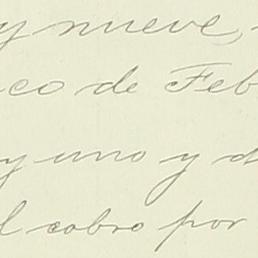 y nueve,
co de Feb
y uno y d
l cobro por